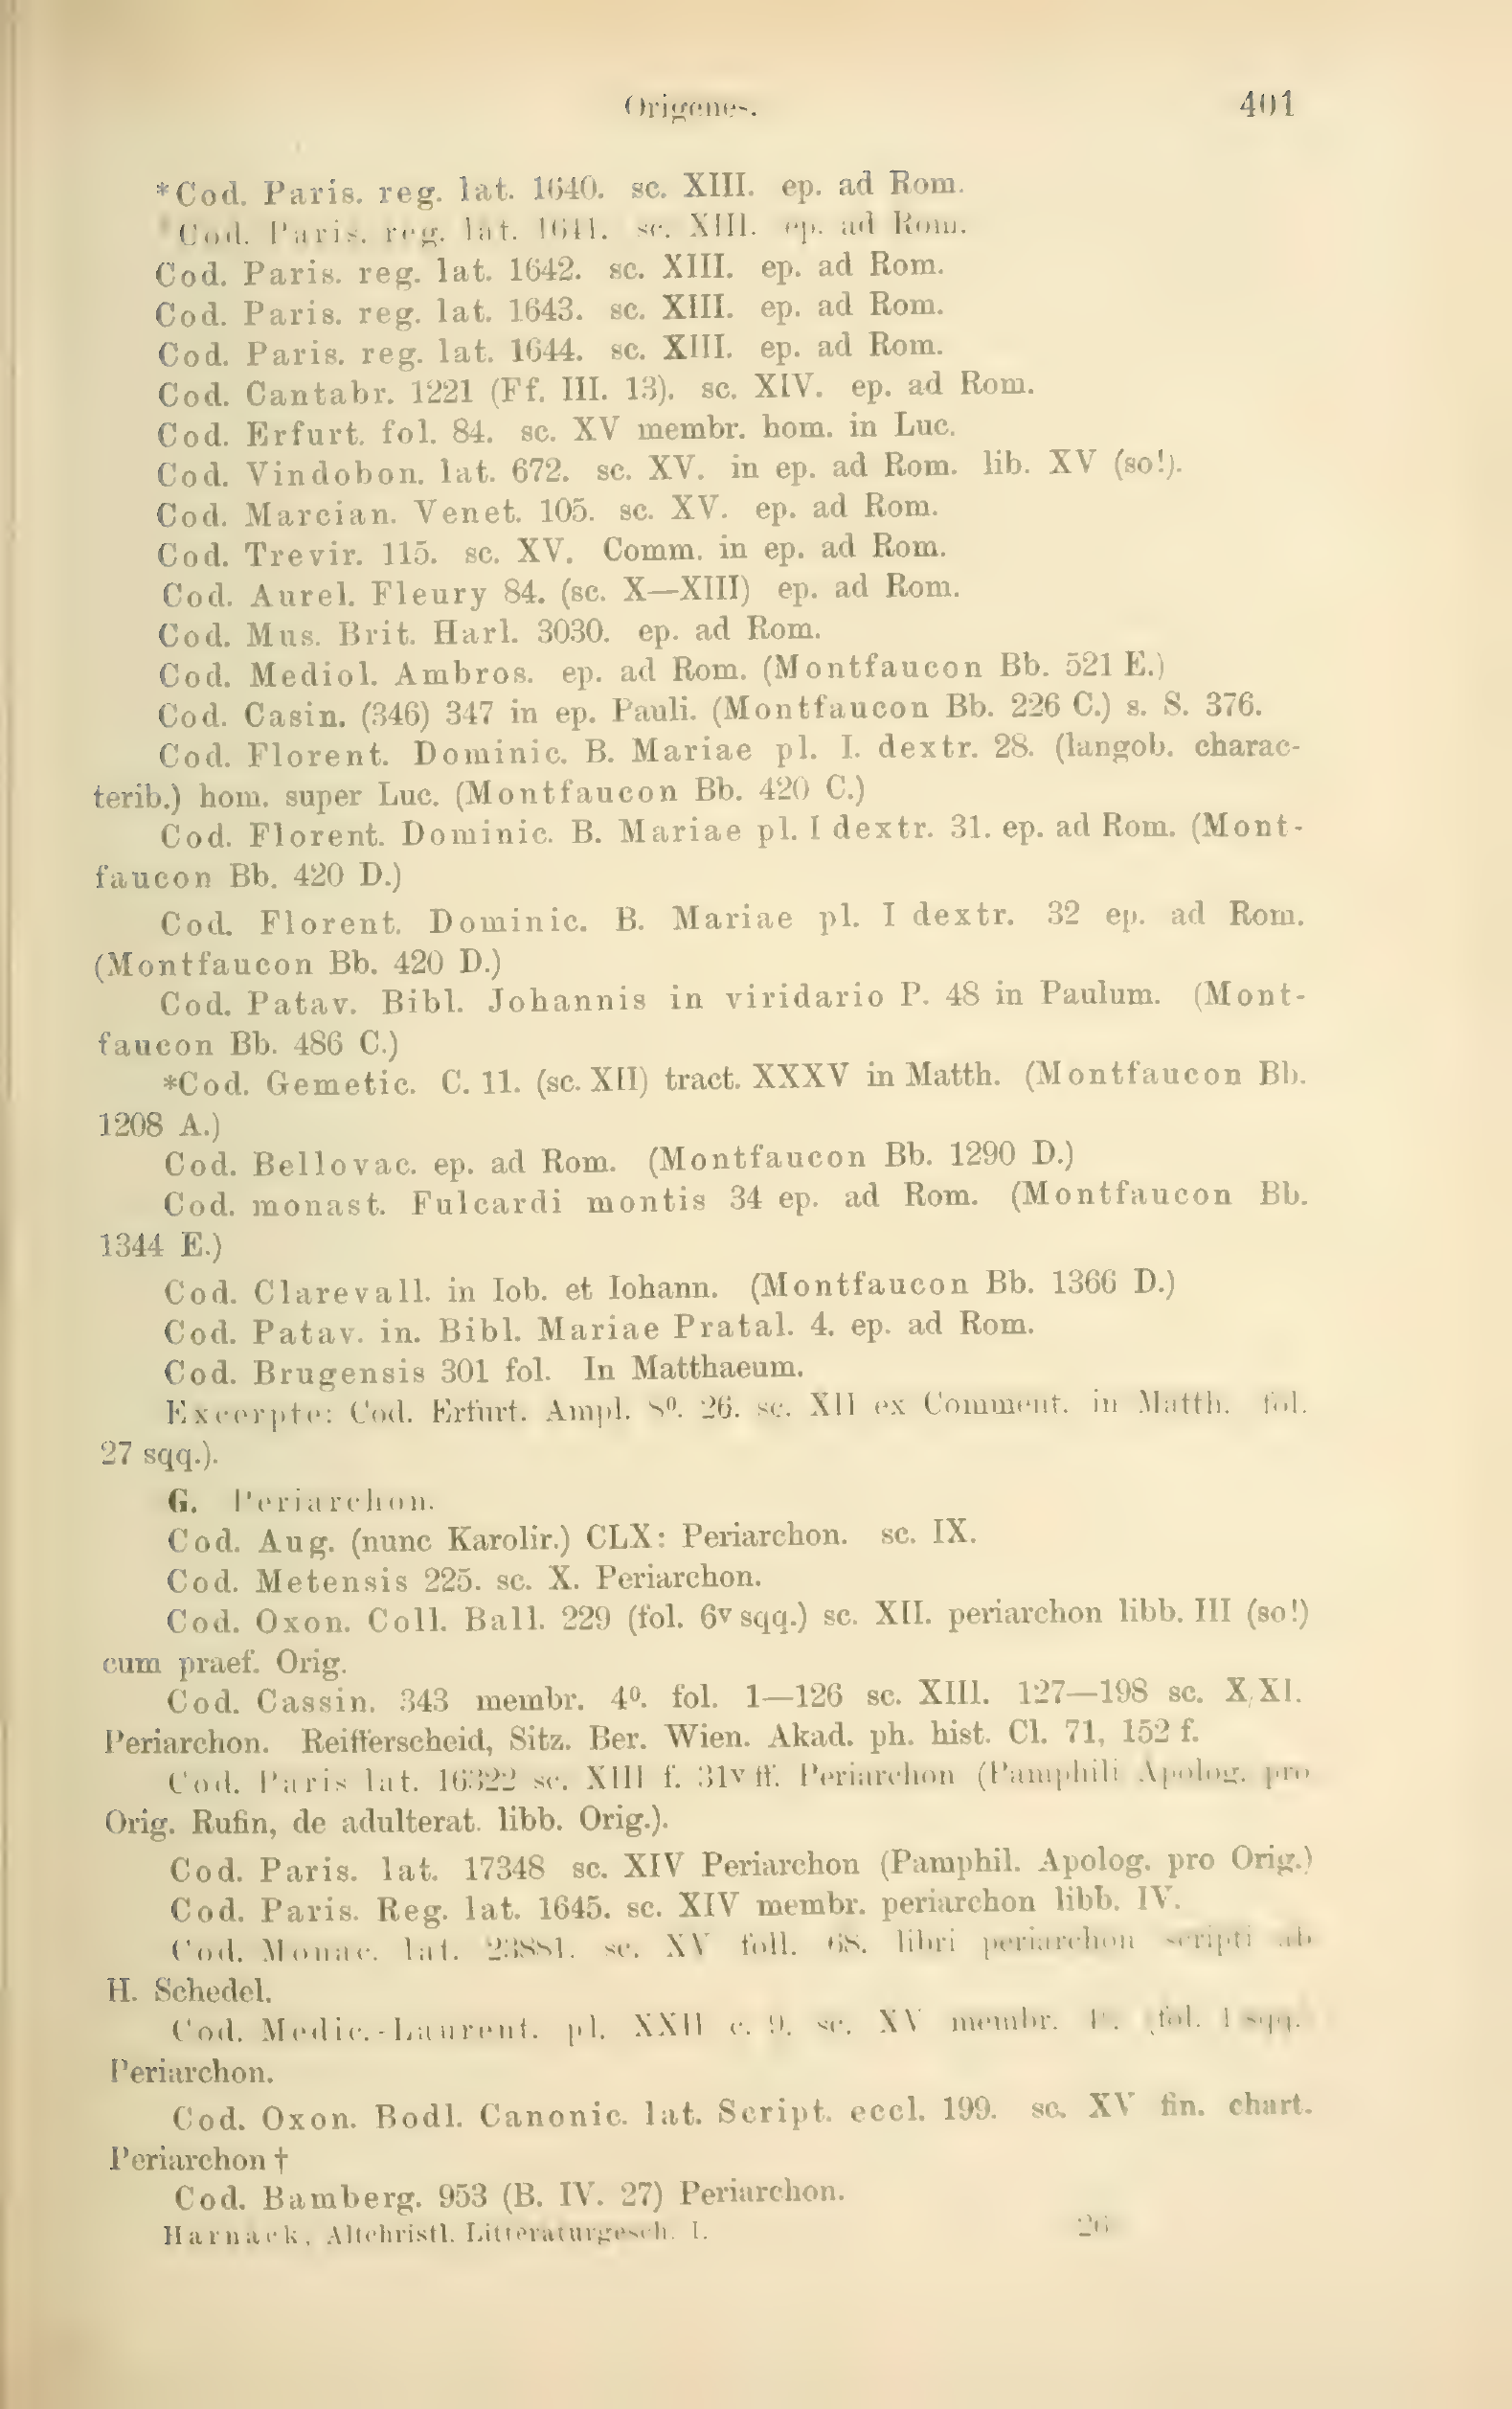 Origenes.
401
*Cod. Paris. reg. lat. 1640. sc. XIII. ep. ad Rom.
*Cod. Paris. reg. lat. 1641. sc. XIII. ep. ad Rom.
Cod. Paris. reg. lat. 1642. sc. XIII. ep. ad Rom.
Cod. Paris. reg. lat. 1643. sc. XIII. ep. ad Rom.
Cod. Paris. reg. lat. 1644. sc. XIII. ep. ad Rom.
Cod. Cantabr. 1221 (Ff. III. 13). sc. XIV. ep. ad Rom.
Cod. Erfurt. fol. 84. sc. XV membr. hom. in Luc.
Cod. Vindobon. lat. 672. sc. XV. in ep. ad Rom. lib. XV (so!).
Cod. Marcian. Venet. 105. sc. XV. ep. ad Rom.
Cod. Trevir. 115. sc. XV. Comm. in ep. ad Rom.
Cod. Aurel. Fleury 84. (sc. X—XIII) ep. ad Rom.
Cod. Mus. Brit. Harl. 3030. ep. ad Rom.
Cod. Mediol. Ambros. ep. ad Rom. (Montfaucon Bb. 521 E.)
Cod. Casin. (346) 347 in ep. Pauli. (Montfaucon Bb. 226 C.) s. S. 376.
Cod. Florent. Dominic. B. Mariae pl. I. dextr. 28. (langob. charac-
terib.) hom. super Luc. (Montfaucon Bb. 420 C.)
Cod. Florent. Dominic. B. Mariae pl. I dextr. 31. ep. ad Rom. (Mont-
faucon Bb. 420 D.)
Cod. Florent. Dominic. B. Mariae pl. I dextr. 32 ep. ad Rom.
(Montfaucon Bb. 420 D.)
Cod. Patav. Bibl. Johannis in viridario P. 48 in Paulum. (Mont-
faucon Bb. 486 C.)
*Cod. Gemetic. C. 11. (sc. XII) tract. XXXV in Matth. (Montfaucon Bb.
1208 A.)
Cod. Bellovac. ep. ad Rom. (Montfaucon Bb. 1290 D.)
Cod. monast. Fulcardi montis 34 ep. ad Rom. (Montfaucon Bb.
1344 E.)
Cod. Clarevall. in Iob. et Iohann. (Montfaucon Bb. 1366 D.)
Cod. Patav. in. Bibl. Mariae Pratal. 4. ep. ad Rom.
Cod. Brugensis 301 fol. In Matthaeum.
Excerpte: Cod. Erfurt. Ampl. 8⁰. 26. sc. XII ex Comment. in Matth. fol.
27 sqq.).
G. Periarchon.
Cod. Aug. (nunc Karolir.) CLX: Periarchon. sc. IX.
Cod. Metensis 225. sc. X. Periarchon.
Cod. Oxon. Coll. Ball. 229 (fol. 6v sqq.) sc. XII. periarchon libb. III (so!)
cum praef. Orig.
Cod. Cassin. 343 membr. 4⁰. fol. 1—126 sc. XIII. 127—198 sc. X/XI.
Periarchon. Reifferscheid, Sitz. Ber. Wien. Akad. ph. hist. Cl. 71, 152 f.
Cod. Paris lat. 16322 sc. XIII f. 31v ff. Periarchon (Pamphili Apolog. pro
Orig. Rufin, de adulterat. libb. Orig.).
Cod. Paris. lat. 17348 sc. XIV Periarchon (Pamphil. Apolog. pro Orig.)
Cod. Paris. Reg. lat. 1645. sc. XIV membr. periarchon libb. IV.
Cod. Monac. lat. 23881. sc. XV foll. 68. libri periarchon scripti ab
H. Schedel.
Cod. Medic.-Laurent. pl. XXII c. 9. sc. XV membr. fol. 1 sqq.
Periarchon.
Cod. Oxon. Bodl. Canonic. lat. Script. eccl. 199. sc. XV fin. chart.
Periarchon †
Cod. Bamberg. 953 (B. IV. 27) Periarchon.
Harnack, Altchristl. Litteraturgesch. I.
26